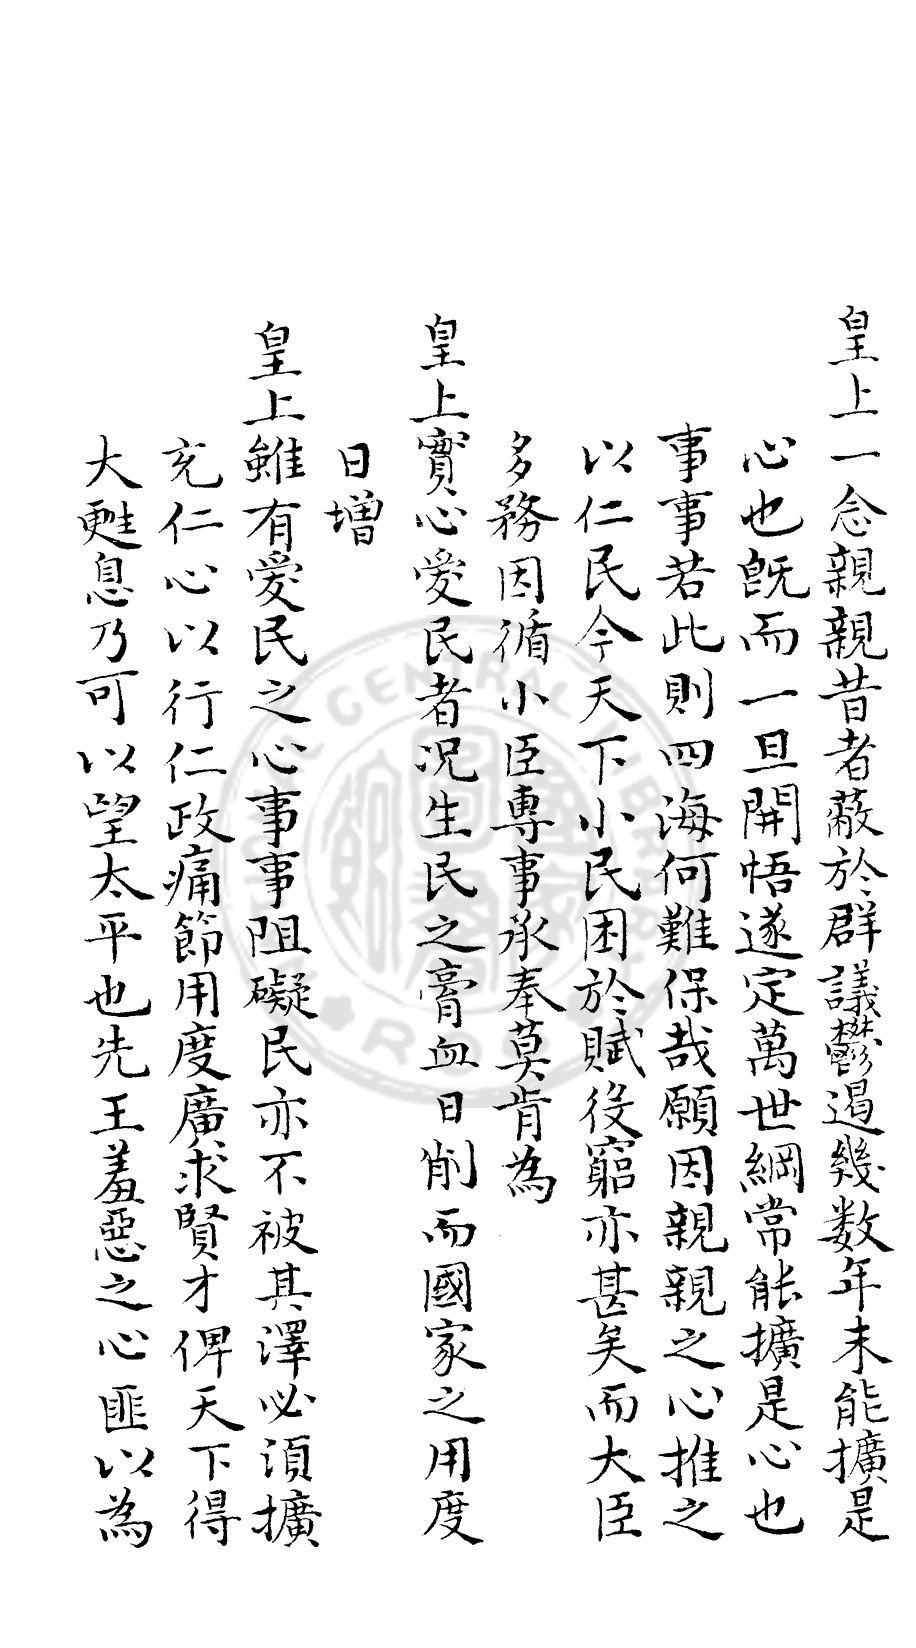 皇上一念親親昔者蔽於群議鬱遏幾数年未能擴是
心也旣而一旦開悟遂定萬世綱常能擴是心也
事事若此則四海何難保哉願因親親之心推之
以仁民今天下小民困於賦役窮亦甚矣而大臣
多務因循小臣專事承奉莫肯為
皇上實心愛民者况生民之膏血日削而國家之用度
日增
皇上雖有愛民之心事事阻礙民亦不被其澤必須擴
充仁心以行仁政痛節用度廣求賢才俾天下得
大甦息乃可以望太平也先王羞惡之心匪以為
CENTRAL LIBRARY